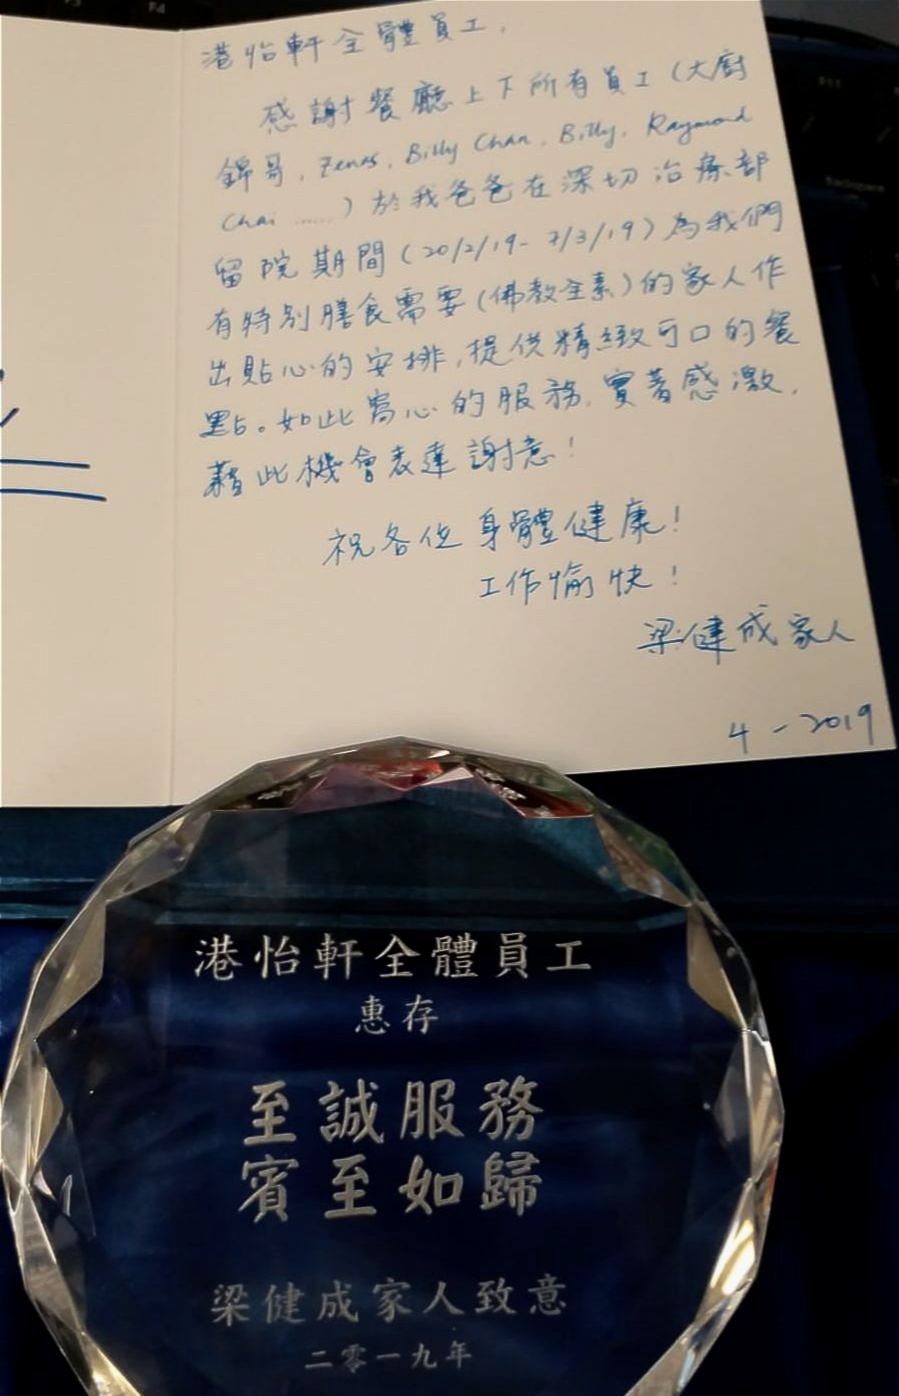 港怡軒全體員工,
感謝餐廳上下所有員工(大廚
錦哥, Zenas, Billy Chan, Billy, Raymond
Chai ......)於我爸爸在深切治療部
留院期間(20/2/19- 7/3/19)為我們
有特別膳食需要(佛教全素)的家人作
出貼心的安排,提供精緻可口的餐
點。如此窩心的服務,實著感激,
藉此機會表達謝意!
祝各位身體健康!
工作愉快!
梁健成家人
4 - 2019
港怡軒全體員工
惠存
至誠服務
賓至如歸
梁健成家人致意
二零一九年